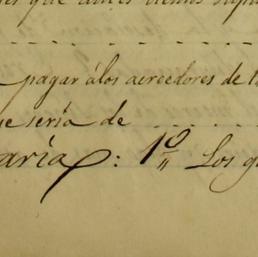 que antes
pagar álos acreedores de l
e sería de
aría: 1º Los g